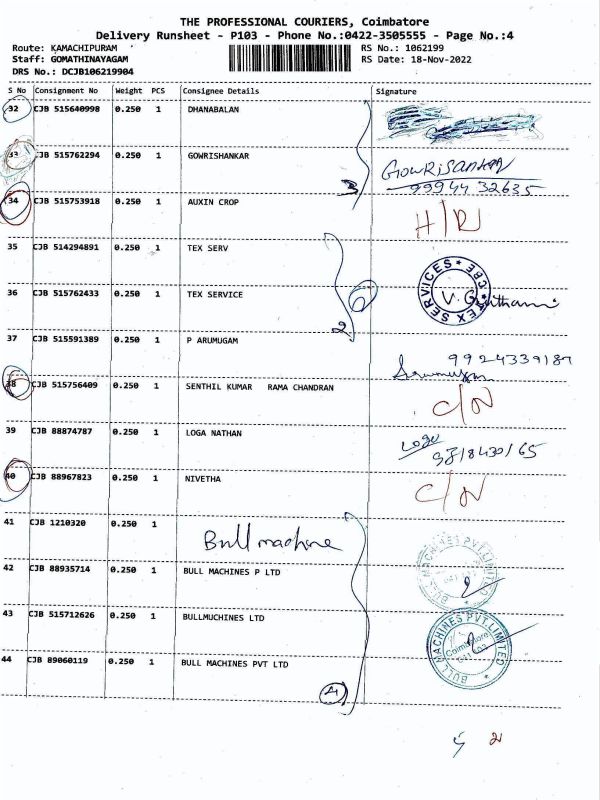 THE PROFESSIONAL COURIERS, Coimbatore
Delivery Runsheet - P103 - Phone No.:0422-3505555 - Page No.:4
Route: KAMACHIPURAM RS No.: 1062199
Staff: GOMATHINAYAGAM RS Date: 18-Nov-2022
DRS No.: DCJB106219904
S No Consignment No Weight PCS Consignee Details Signature
32 CJB 515640998 0.250 1 DHANABALAN
33 CJB 515762294 0.250 1 GOWRISHANKAR GOWRISANKAR
3 99944 32635
34 CJB 515753918 0.250 1 AUXIN CROP H/R
35 CJB 514294891 0.250 1 TEX SERV
36 CJB 515762433 0.250 1 TEX SERVICE TEX SERVICES * CBE *
2
37 CJB 515591389 0.250 1 P ARUMUGAM
38 CJB 515756409 0.250 1 SENTHIL KUMAR RAMA CHANDRAN C/N
39 CJB 88874787 0.250 1 LOGA NATHAN Logu
40 CJB 88967823 0.250 1 NIVETHA C/N
41 CJB 1210320 0.250 1 Bull machine
42 CJB 88935714 0.250 1 BULL MACHINES P LTD BULL MACHINES PVT.LIMITED
43 CJB 515712626 0.250 1 BULLMUCHINES LTD BULL MACHINES PVT.LIMITED
Coimbatore
44 CJB 89060119 0.250 1 BULL MACHINES PVT LTD
4